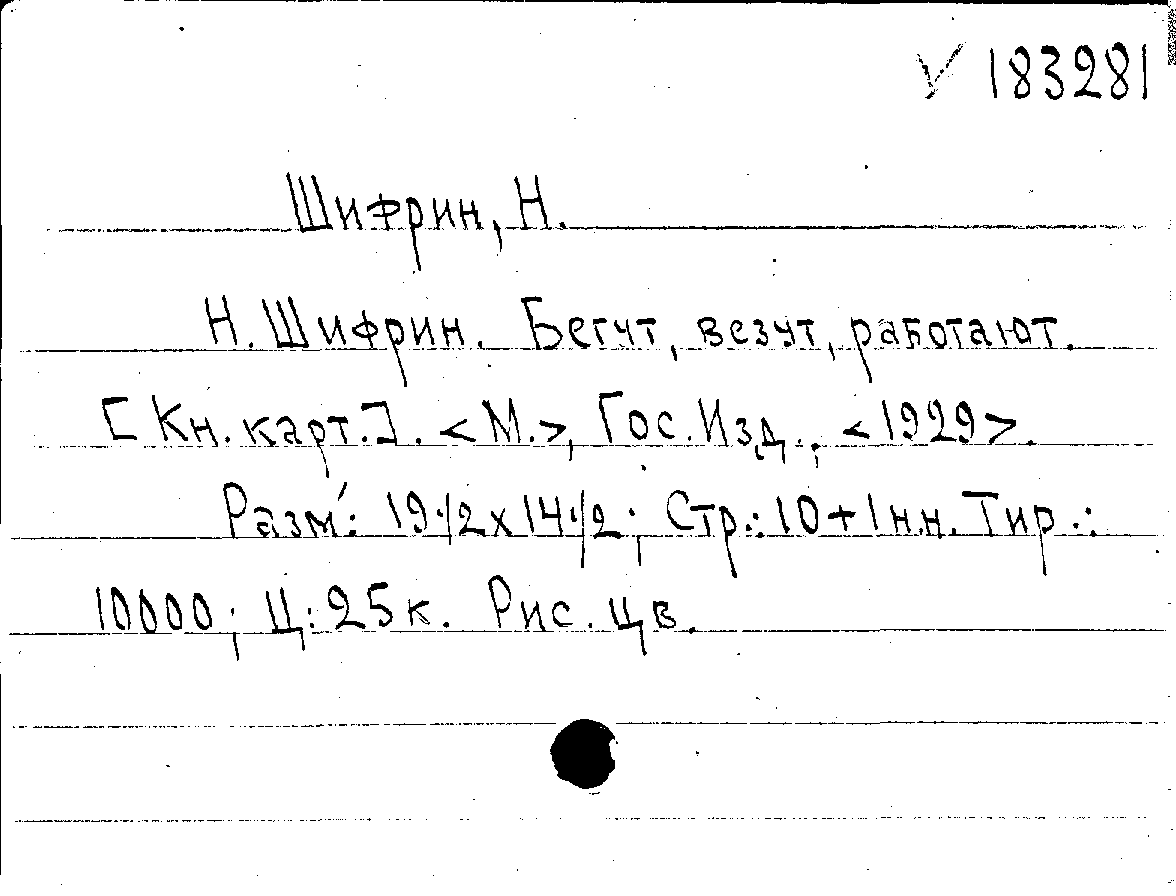 √ 183281
Шифрин, Н.
Н. Шифрин. Бегут, везут, работают.
[Кн. карт.]. <М.>, Гос. Изд., <1929>.
Разм.: 19 1/2 x 14 1/2; Стр.: 10 + 1 н.н. Тир.:
10000; Ц: 25 к. Рис. цв.